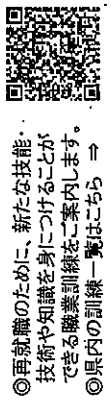 ◎再就職のために、新たな技能・
技術や知識を身につけることが
できる職業訓練をご案内します。
◎県内の訓練一覧はこちら ⇒